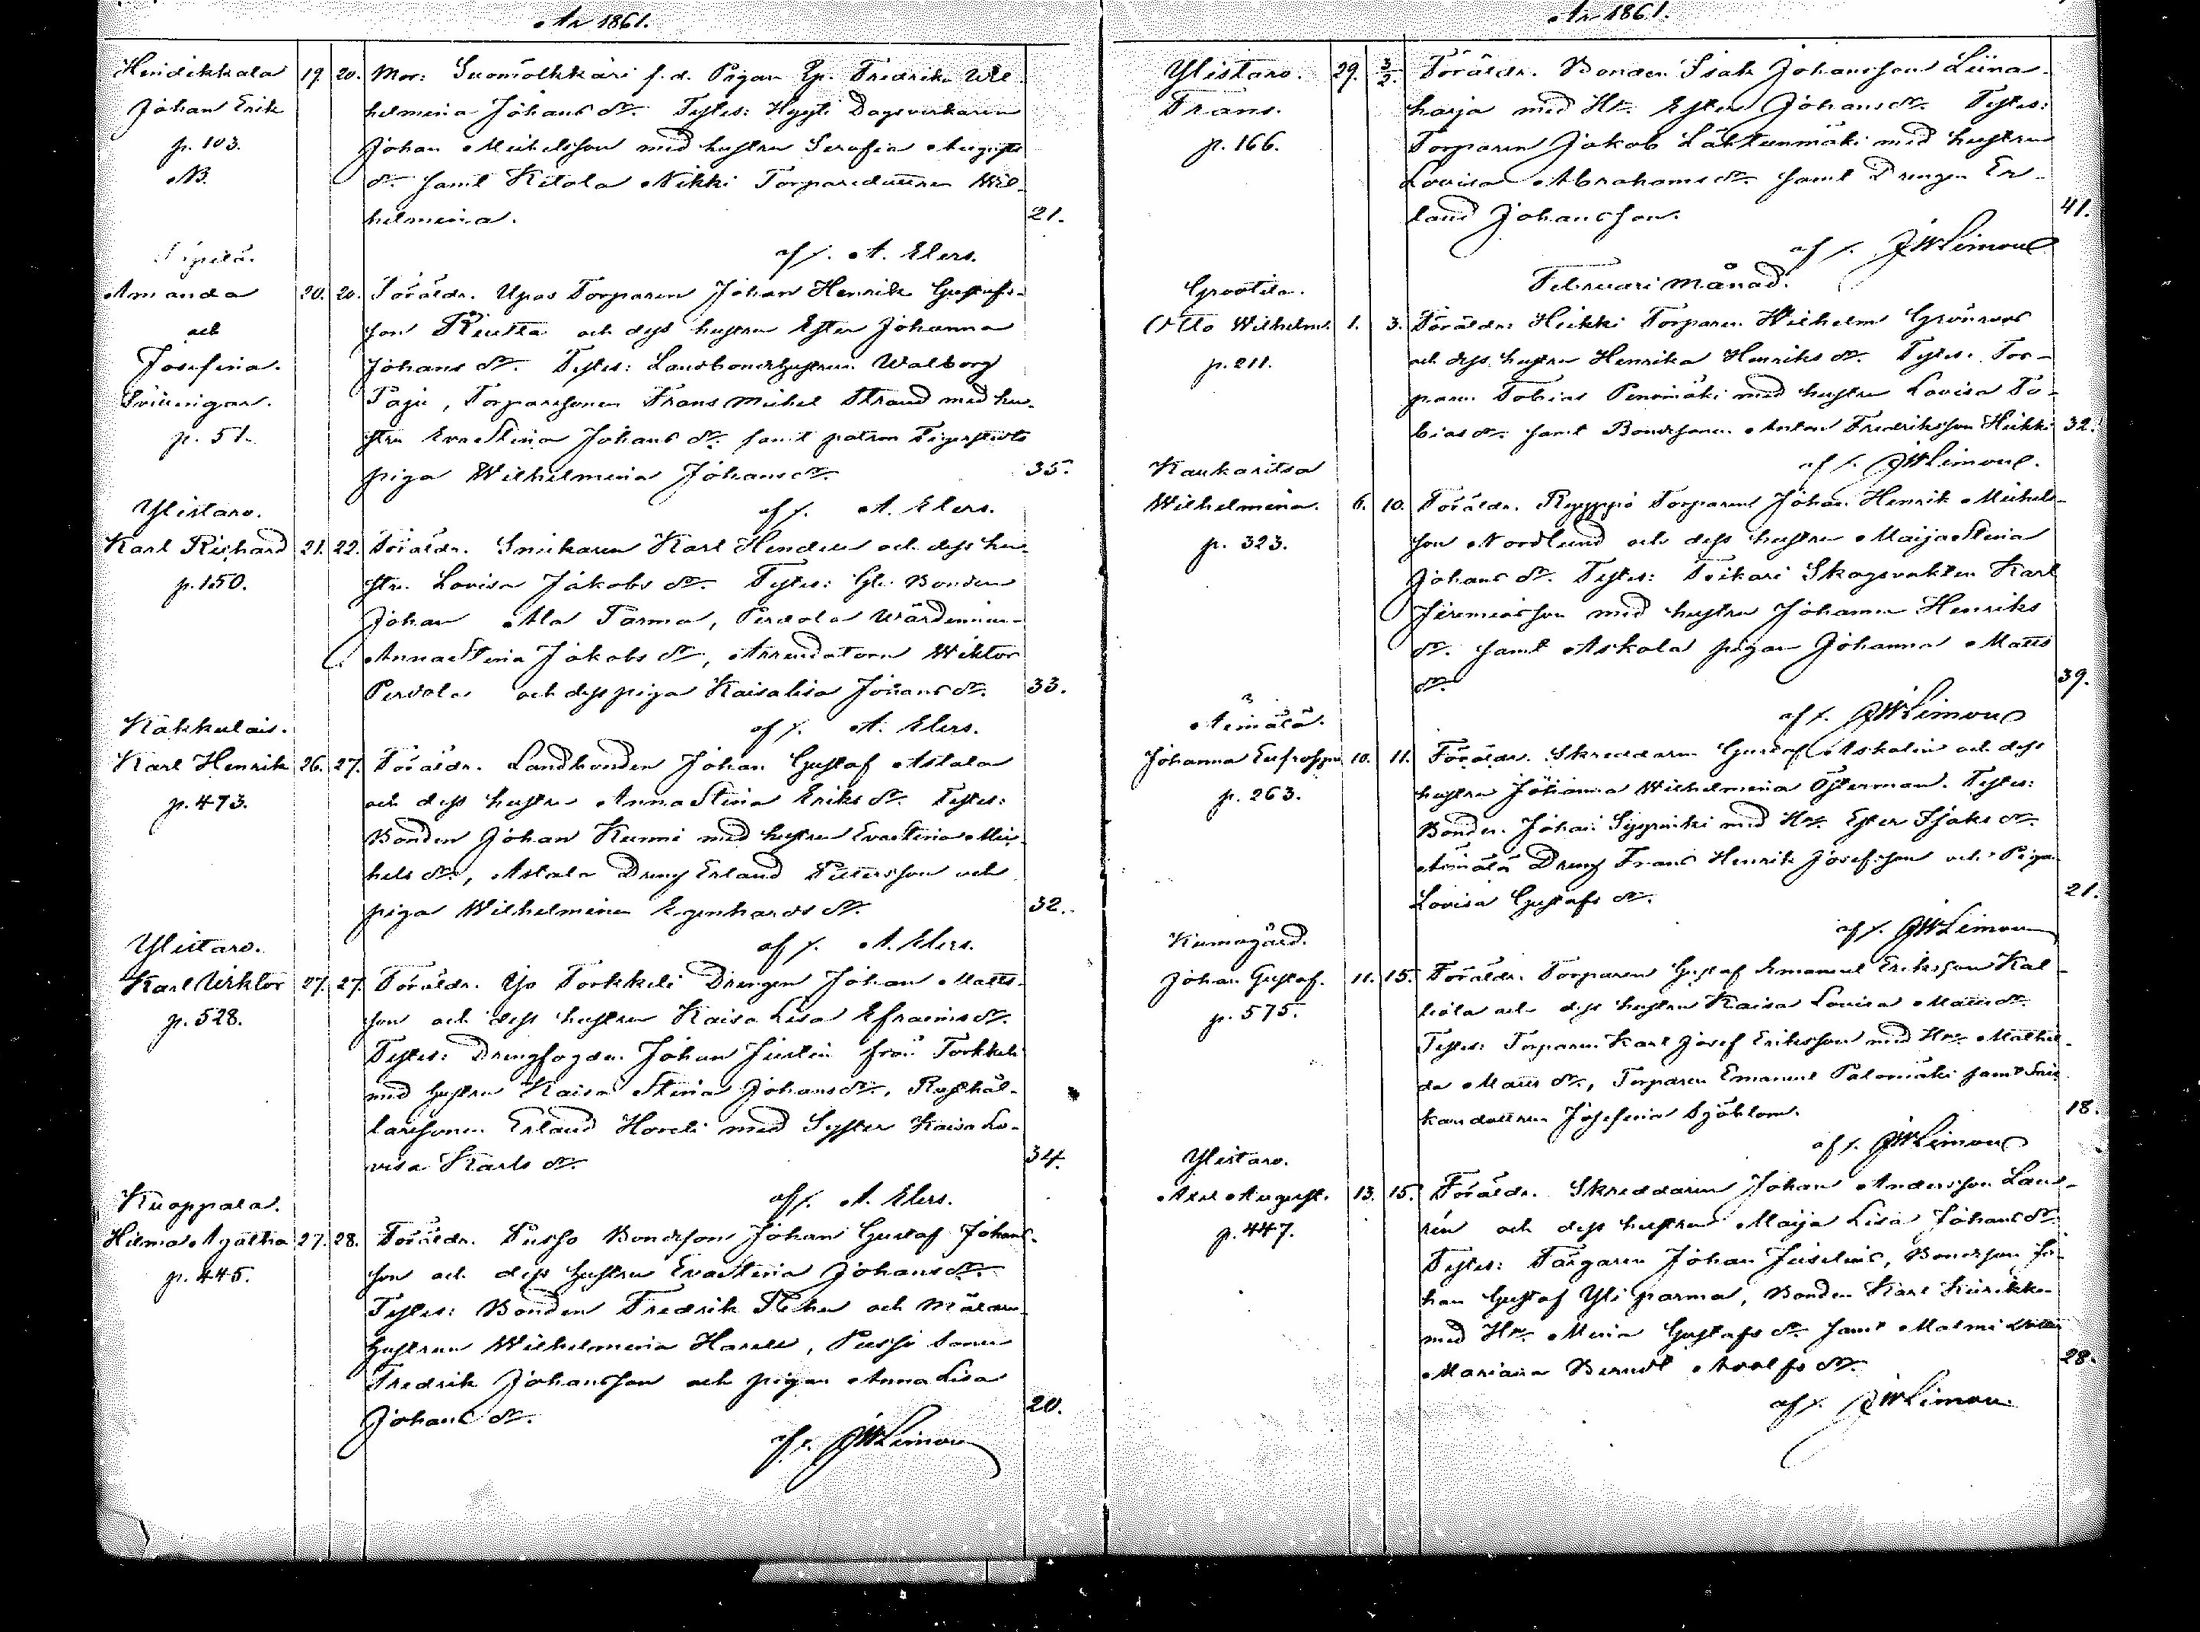 År 1861.
Heidikkala 19. 20. Mor: Suomölkkäri f. d. Pigan Fredrika Wil-
Johan Erik helmina Johans dr. Testes: Dagsverkaren
p. 103. Johan Michelsson med hustru Serafia August
NB. dr. samt Ketola Nikki Torparedottren Wil-
helmina. 21.
af f. A. Elers.
Sipilä.
Amanda 20. 20. Föräldr. Upos Torparen Johan Henrik Gustafs-
och son Riutta och dess hustru Ester Johanna
Josefina. Johans dr. Testes: Landbondehustrun Walborg
Tvillingar. Paju, Torparesonen Frans Michel Strand med hu-
p. 51. stru Eva Stina Johans dr. samt patron Tigerstedts
piga Wilhelmina Johans dr. 35.
af f. A. Elers.
Ylistaro.
Karl Richard 21. 22. Föräldr. Snickaren Karl Hendell och dess hu-
p. 150. stru Lovisa Jakobs dr. Testes: Gl. Bonden
Johan Ala Parma, Perdola Wärdinnan
Anna Stina Jakobs dr, Arrendatorn Wiktor
Perdola och dess piga Kaisa Lisa Johans dr. 33.
af f. A. Elers.
Kakkulais.
Karl Henrik 26. 27. Föräldr. Landbonden Johan Gustaf Astala
p. 473. och dess hustru Anna Stina Eriks dr. Testes:
Bonden Johan Kunni med hustru Eva Stina Mic-
hels dr., Astala Dreng Erland Pettersson och
piga Wilhelmina Egenhards dr. 32.
af f. A. Elers.
Ylistaro.
Karl Wiktor 27. 27. Föräldr. Yjo Torkkeli Drengen Johan Matts-
p. 528. son och dess hustru Kaisa Lisa Efraims dr.
Testes: Drengfogden Johan Justin från Torkkeli
med hustru Kaisa Stina Johans dr., Rusthål-
laresonen Erland Horeli med Syster Kaisa Lo-
visa Karls dr. 34.
af f. A. Elers.
Kuoppala.
Hilma Agatha 27. 28. Föräldr. Pusso Bondeson Johan Gustaf Johans-
p. 445. son och dess hustru Eva Stina Johans dr.
Testes: Bonden Fredrik och Målare-
hustrun Wilhelmina, Pusso sonen
Fredrik Johansson och pigan Anna Lisa
Johans dr. 20.
af f. JWLimon
År 1861.
Ylistaro. 29. 3/2. Föräldr. Bonden Isak Johansson Liina-
Frans. harja med Hu. Ester Johans dr. Testes:
p. 166. Torparen Jakob Lähteenmäki med hustru
Lovisa Abrahams dr. samt Drengen Er-
land Johansson. 41.
af f. JWLimon
Februari Månad.
Grootila.
Otto Wilhelm. 1. 3. Föräldr: Heikki Torparen Wilhelm Grönroos
p. 211. och dess hustru Henrika Henriks dr. Testes. Tor-
paren Tobias Penomäki med hustru Lovisa To-
bias dr. samt Bondesonen Anton Fredriksson Heikki 32.
af f. JWLimon.
Kaukaritsa
Wilhelmina. 6. 10. Föräldr. Ryyppiö Torparen Johan Henrik Michels-
p. 323. son Nordlund och dess hustru Maija Stina
Johans dr. Testes: Teikari Skogsvakten Karl
Jeremiasson med hustru Johanna Henriks
dr. samt Askola pigan Johanna Matts
dr. 39.
af f. JWLimon
Äimälä.
Johanna Eufrosyne 10. 11. Föräldr. Skreddaren Gustaf Askolin och dess
p. 263. hustru Johanna Wilhelmina Österman. Testes:
Bonden Johan med Hu. Ester Isaks dr.
Äimälä Dreng Frans Henrik Josefsson och Piga
Lovisa Gustafs dr. 21.
af f. JWLimon
Kumogård.
Johan Gustaf. 11. 15. Föräldr. Torparen Gustaf Emanuel Eriksson Kal-
p. 575. liola och dess hustru Kaisa Lovisa Matts dr.
Testes: Torparen Karl Josef Eriksson med Hu. Mathil-
da Matts dr., Torparen Emanuel Palomäki samt Snic-
karedottren Josefina Sjöblom. 18.
af f. JWLimon
Ylistaro.
Axel August. 13. 15. Föräldr. Skreddaren Johan Andersson Lau-
p. 447. rén och dess hustru Maija Lisa Johans dr.
Testes: Färgaren Johan Juselius, Bondeson Jo-
han Gustaf Yli parma, Bonden Karl Kiirikka
med Hu. Maria Gustafs dr. samt Malmi
Mariana Berndt Adolfs dr. 28.
af f. JWLimon